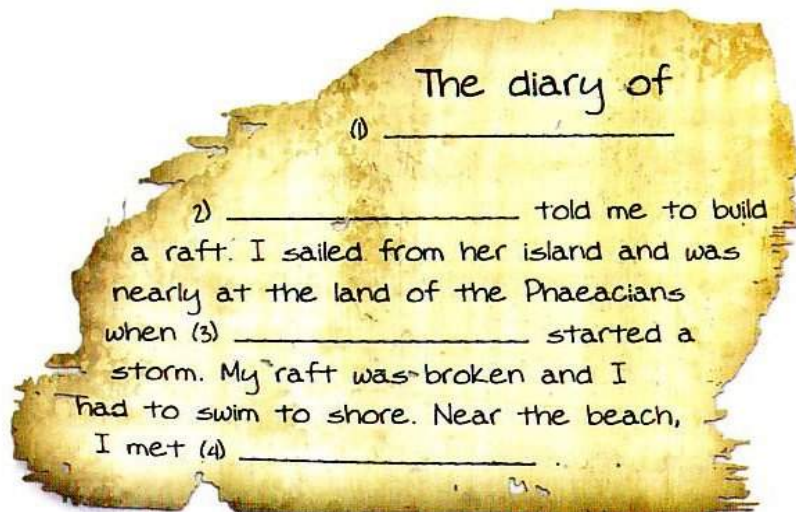 The diary of
(1) ____________________
2) ____________________ told me to build
a raft. I sailed from her island and was
nearly at the land of the Phaeacians
when (3) ____________________ started a
storm. My raft was broken and I
had to swim to shore. Near the beach,
I met (4) ____________________.